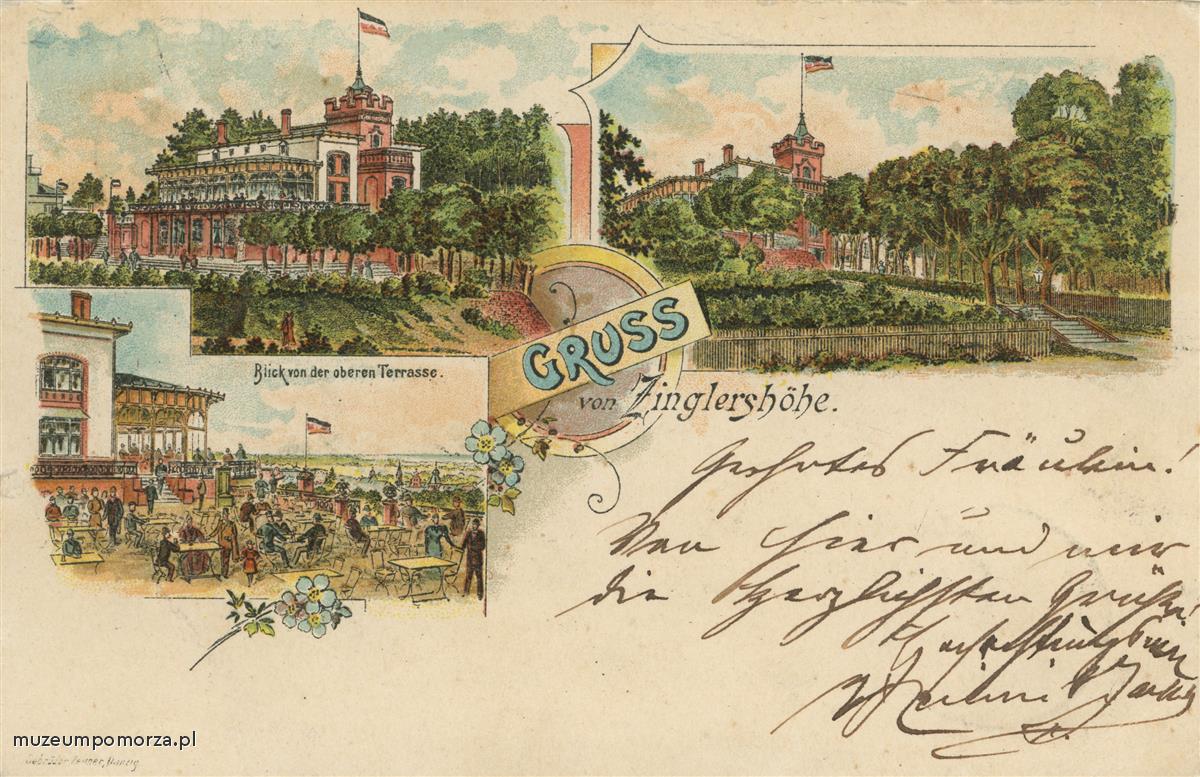 Blick von der oberen Terrasse.
GRUSS
von Zinglershöhe.
Geehrtes Fräulein!
Von hier und mir
die Herzlichsten Grüße!
Hochachtungsvoll
muzeumpomorza.pl
Gebrüder Zeuner, Danzig